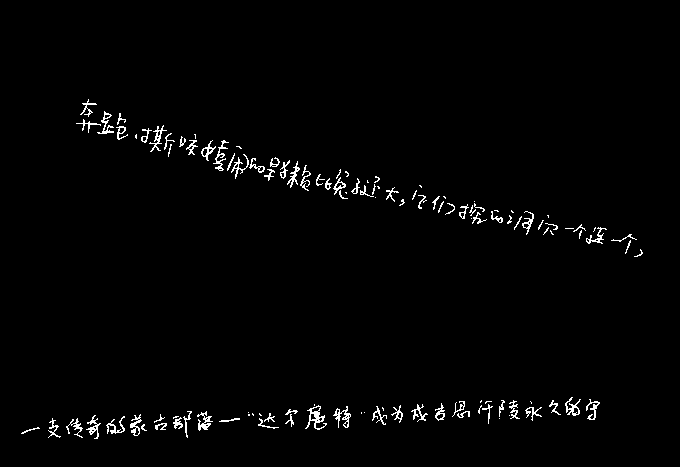 奔跑、撕咬嬉闹的旱獭比兔子还大,它们挖的洞穴一个连一个,
一支传奇的蒙古部落一“达尔扈特”成为成吉思汗陵永久的守